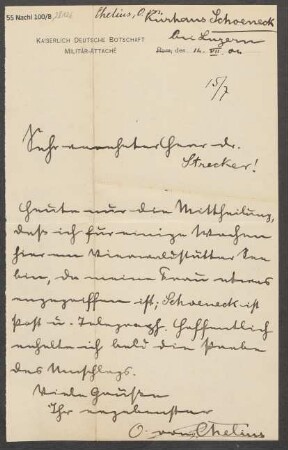 55 Nachl 100/B,
Chelius, O. v.
Kurhaus Schoeneck
bei Luzern
KAISERLICH DEUTSCHE BOTSCHAFT
MILITÄR-ATTACHÉ
Rom, den 14. VII
15/7
Sehr verehrter Herr Dr.
Strecker!
Heute nur die Mittheilung,
daß ich für einige Wochen
hier am Vierwaldstätter See
bin, da meine Frau etwas
angegriffen ist; Schoeneck ist
Post u. Telegraph. Hoffentlich
erhalte ich bald die Probe
des Umschlags.
Viele Grüße
Ihr ergebenster
O. von Chelius